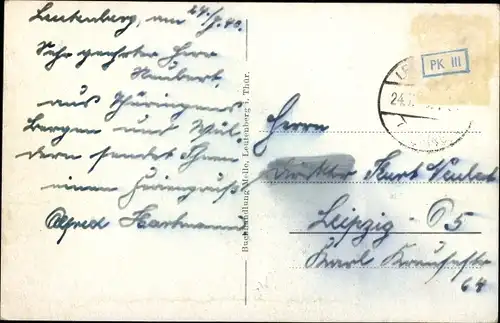 Leutenberg, am 24./7. 40.
Sehr geehrter Herr
Neubert,
aus Thüringens
Bergen und Wäl-
dern sendet Ihnen
einen Feriengruß
Alfred Hartmann
Buchhandlung Melle, Leutenberg i. Thür.
PK III
24.
Herrn
Direktor Kurt Neubert
Leipzig - O5
Karl Krausestr
64